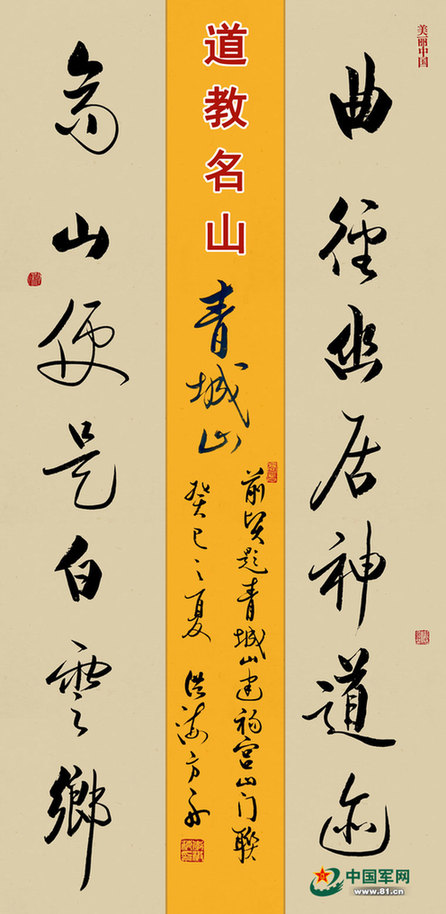 美丽中国
曲徑幽居神道迹
道教名山
青城山
前賢题青城山建福宫山门联
癸巳之夏 洪海方
山便是白雲鄉
中国军网
www.81.cn